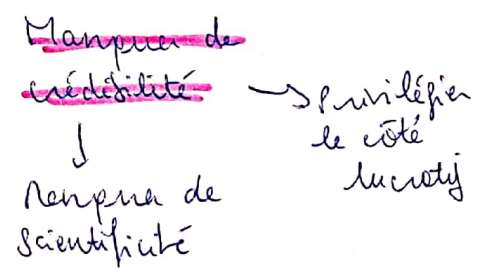 Manquer de
crédibilité
→ Privilégier
le côté
lucratif
↓
Manquer de
scientificité